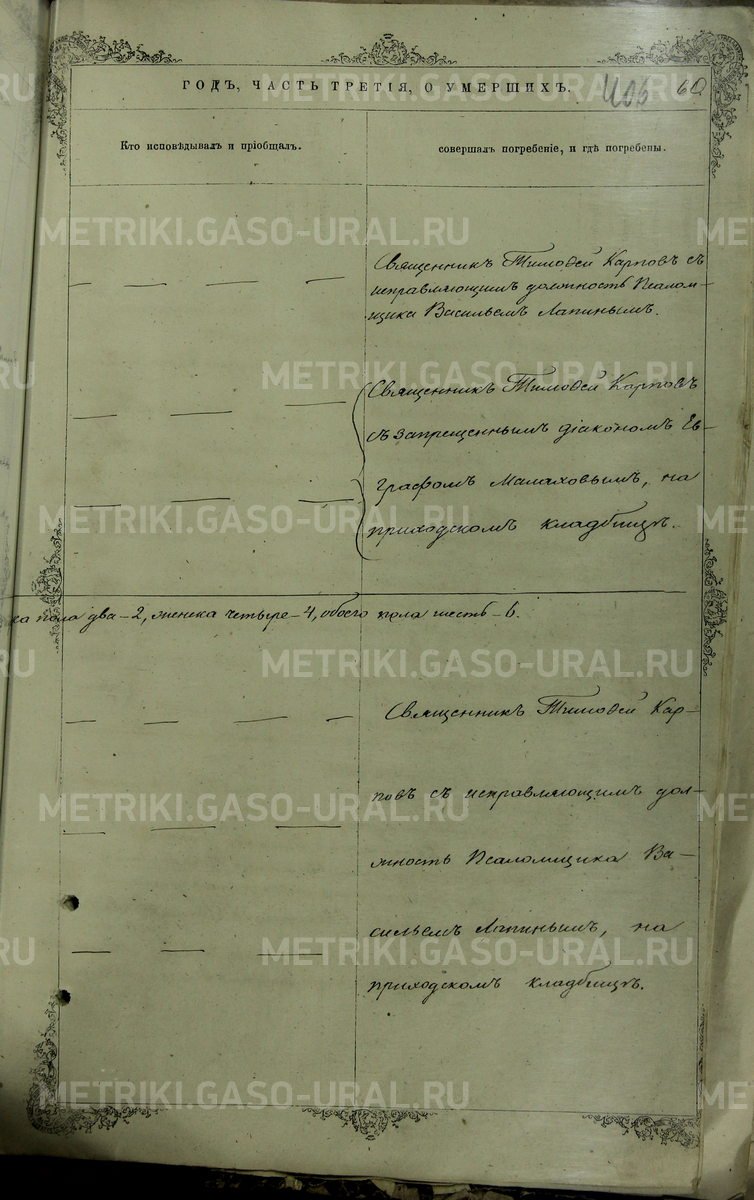 ГОДЪ, ЧАСТЬ ТРЕТІЯ, О УМЕРШИХЪ.
406
60
Кто исповѣдывалъ и пріобщалъ.
совершалъ погребеніе, и гдѣ погребены.
Священникъ Тимоѳей Карповъ съ
исправляющимъ должность Псалом-
щика Васильемъ Лапинымъ.
Священникъ Тимоѳей Карповъ
съ запрещеннымъ діакономъ Ев-
графомъ Малаховымъ, на
приходскомъ кладбищѣ.
пола два - 2, женска четыре - 4, обоего пола шесть - 6.
Священникъ Тимоѳей Кар-
повъ съ исправляющимъ дол-
жность Псаломщика Ва-
сильемъ Лапинымъ, на
приходскомъ кладбищѣ.
METRIKI.GASO-URAL.RU